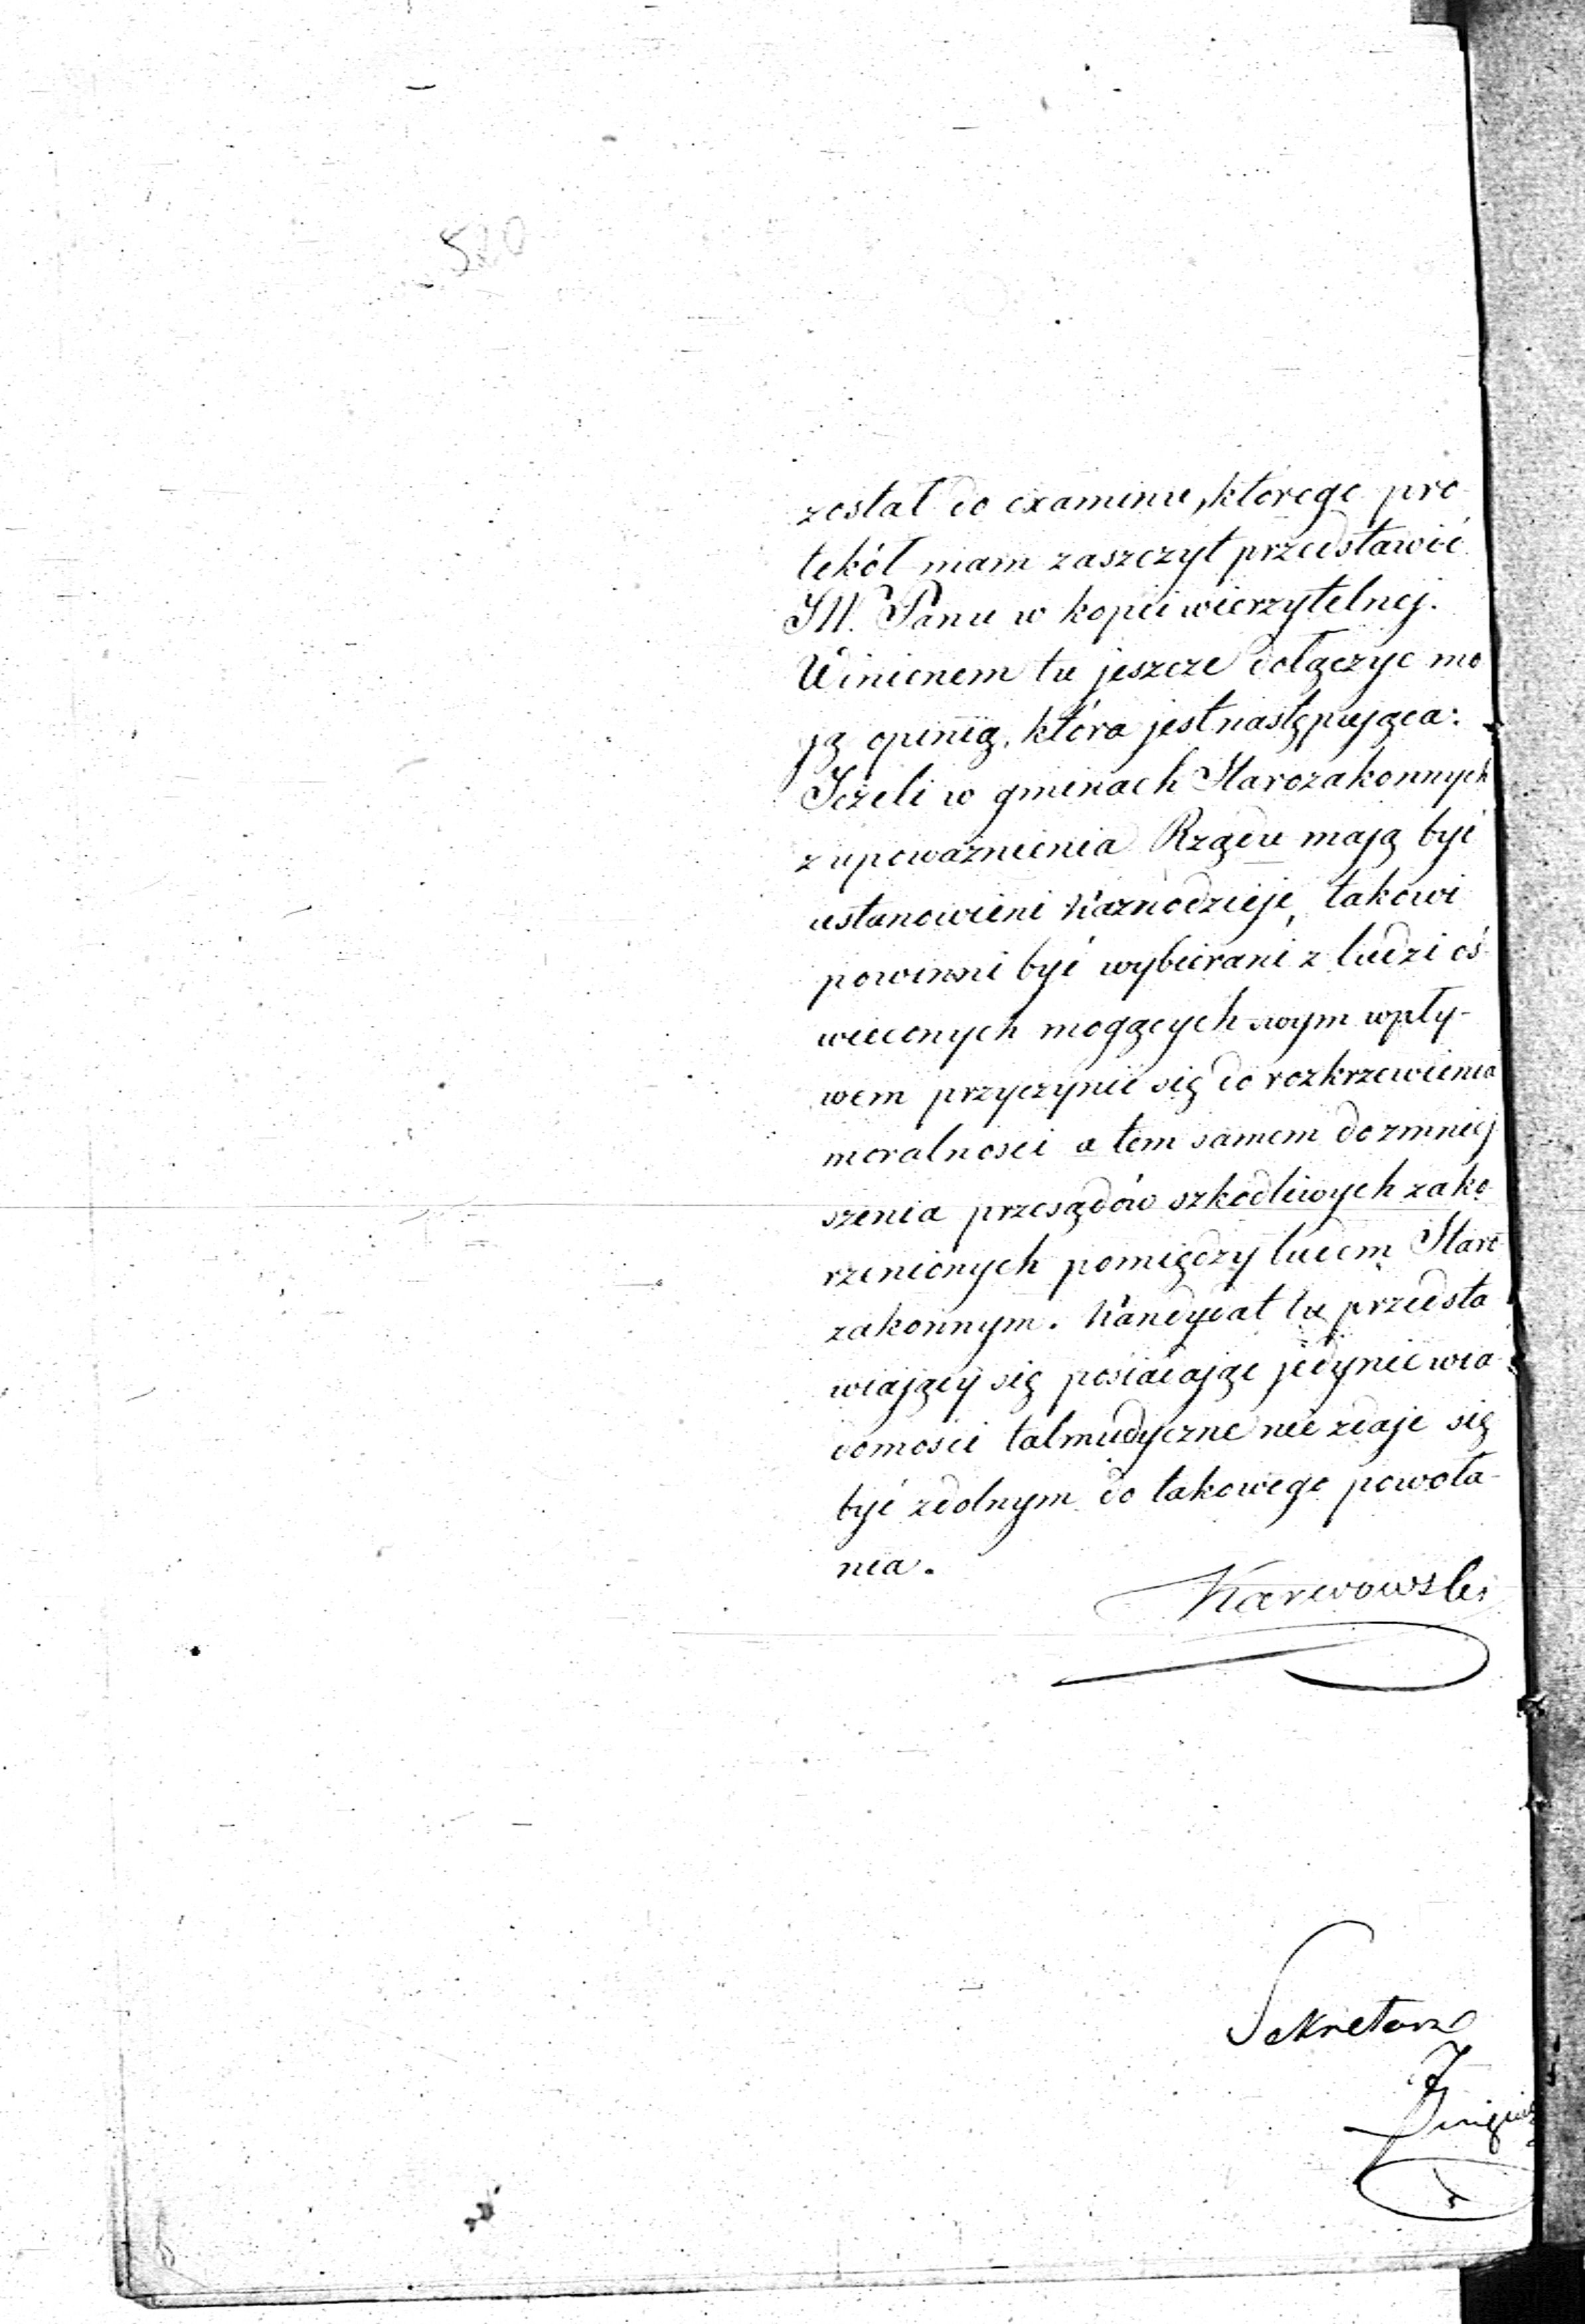 520
został do examinu, którego pro
tokół mam zaszczyt przedstawić
JW. Panu w kopii wierzytelnej.
Winienem tu jeszcze dołączyć mo
ją opinią, która jest następująca:
Jeżeli w gminach Starozakonnych
z upoważnienia Rządu mają być
ustanowieni Kaznodzieje, takowi
powinni być wybierani z ludzi oś
wieconych mogących swym wpły-
wem przyczynić się do rozkrzewienia
moralności a tem samem do zmniej
szenia przesądów szkodliwych zako
rzenionych pomiędzy ludem Staro
zakonnym. Kandydat tu przedsta
wiający się posiadając jedynie wia
domości talmudyczne nie zdaje się
być zdolnym do takowego powoła-
nia.
Karwowski
Sekretarz